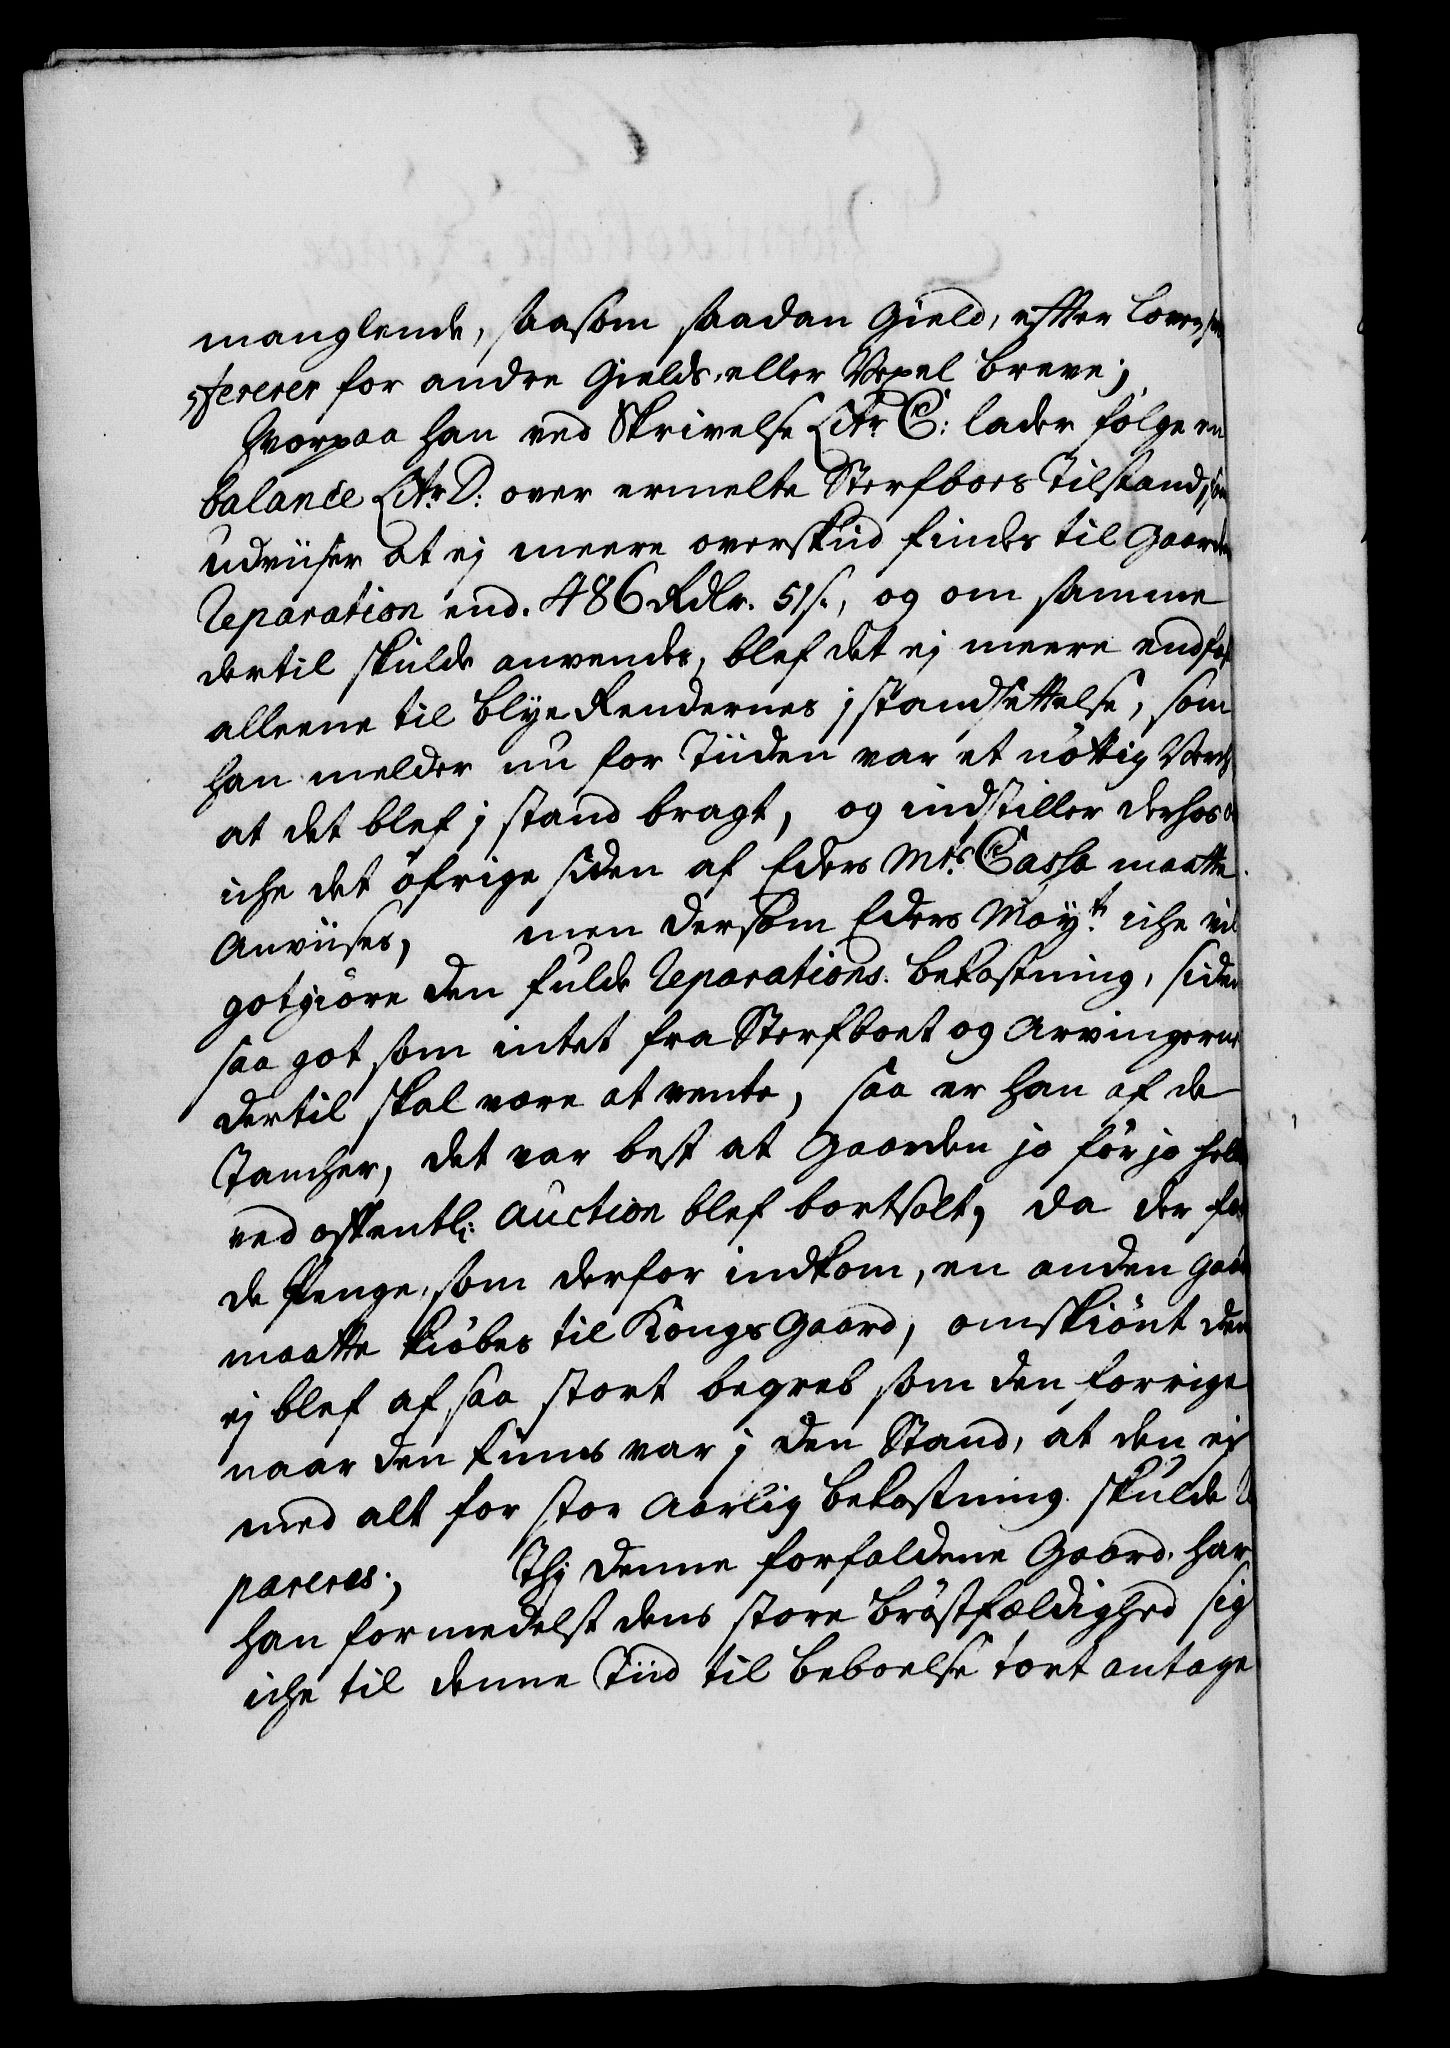 manglende, saasom saadan Gield, efter Loven
fererer for andre Gields eller Vexel breve;
Hvorpaa han ved Skrivelse Litr. C: lader følge en
balance Litr. D: over ermelte Sterfboes Tilstand, som
udviiser at ej meere overskud findes til Gaarden
Reparation end. 486 Rdlr. 51 s., og om samme
dertil skulde anvendes, blef det ej meere end
alleene til Blye Rendernes jstandsettelse, som
han melder nu for Tiiden var et nøttig Verch
at det blef j stand bragt, og indstiller derhos
iche det øfrige siden af Eders Mts. Cassa maatte
Anviises, men dersom Eders Mayt. iche vil
gotgiøre den fulde Reparations. bekostning, siden
saa got som intet fra Sterfboet og Arvingerne
dertil skal være at vente, saa er han af de
Tancher, det var best at Gaarden jo før jo heller
ved offentl: Auction blef bortsolt, da der for
de Penge, som derfor indkom, en anden gaard
maatte kiøbes til Kongs Gaard, omskiønt den
ej blef af saa stort begreb som den forrige
naar den kuns var j den Stand, at den ej
med alt for stor Aarlig bekostning skulde
pareres; Thj denne forfaldene Gaard. har
han formedelst dens store brøstfældighed sig
iche til denne Tiid til beboelse tort antage